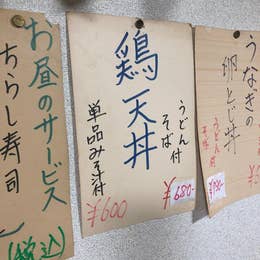 うなぎの
卵とじ丼
うどん付
鶏天丼
うどん付
そば
¥680-
単品みそ汁付
¥600
お昼のサービス
ちらし寿司
(税込)